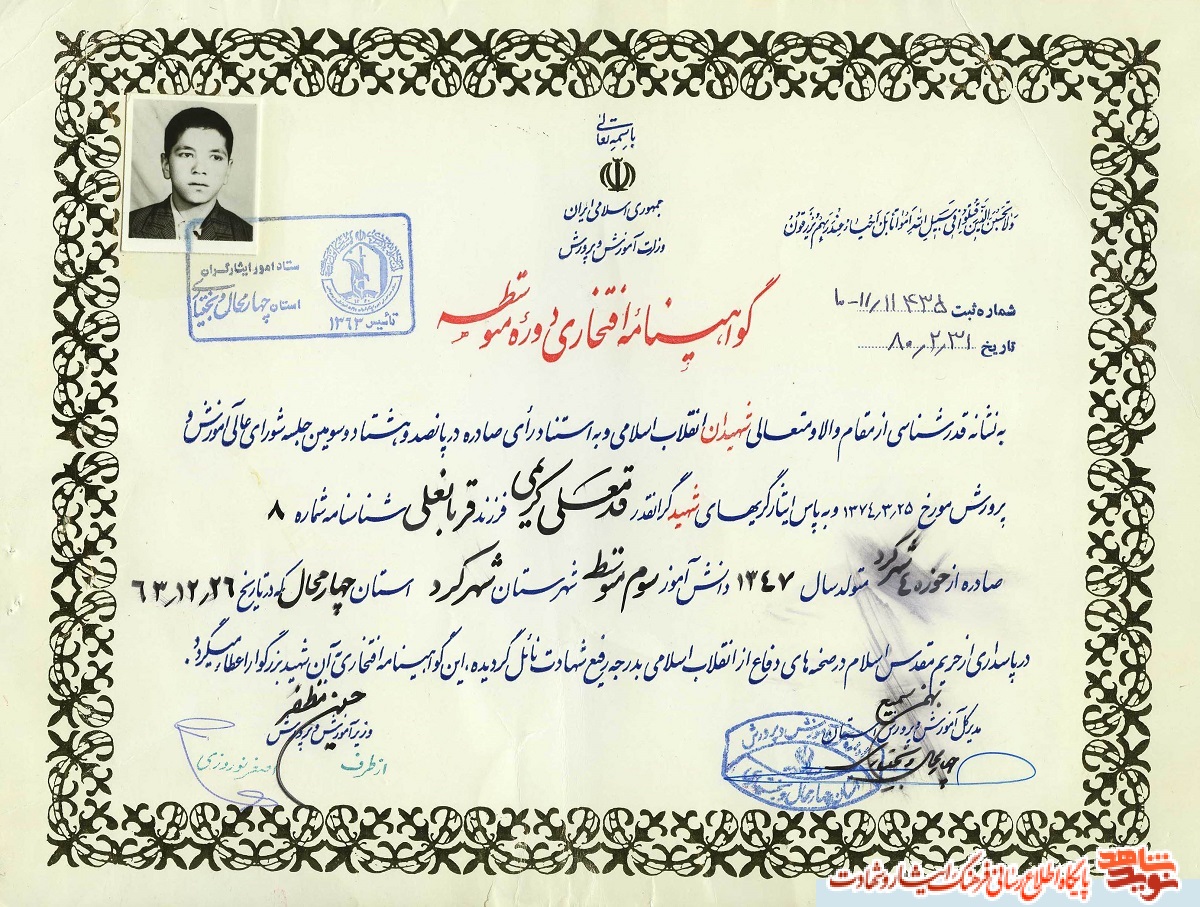 باسمه تعالی
جمهوری اسلامی ایران
وزارت آموزش و پرورش
ولا تحسبن الذین قتلوا فی سبیل الله امواتا بل احیاء عند ربهم یرزقون
شماره ثبت ۱۱٫۱۱۴۳۵-۱۰
تاریخ ۸۰٫۲٫۳۱
ستاد امور ایثارگران
استان چهارمحال و بختیاری
تأسیس ۱۳۶۳
گواهینامهٔ افتخاری دورهٔ متوسطه
به نشانه قدرشناسی از مقام والا و متعالی شهیدان انقلاب اسلامی و به استناد رأی صادره در پانصد و هشتاد و سومین جلسه شورای عالی آموزش و
پرورش مورخ ۱۳۷۴٫۳٫۲۵ و به پاس ایثارگریهای شهید گرانقدر قدمعلی کریمی فرزند قربانعلی شناسنامه شماره ۸
صادره از حوزه ٤ شهرکرد متولد سال ۱۳٤۷ دانش آموز سوم متوسطه شهرستان شهرکرد استان چهارمحال که در تاریخ ۶۳٫۱۲٫۲۶
در پاسداری از حریم مقدس اسلام در صحنه های دفاع از انقلاب اسلامی بدرجه رفیع شهادت نائل گردیده، این گواهینامه افتخاری آن شهید بزرگوار اعطاء میگردد.
بهمن سمیع
مدیر کل آموزش و پرورش استان
چهارمحال و بختیاری
حسین مظفر
وزیر آموزش و پرورش
از طرف
اصغر نوروزی
آموزش و پرورش
استان چهارمحال و بختیاری
نوید شاهد
پایگاه اطلاع رسانی فرهنگ ایثار و شهادت